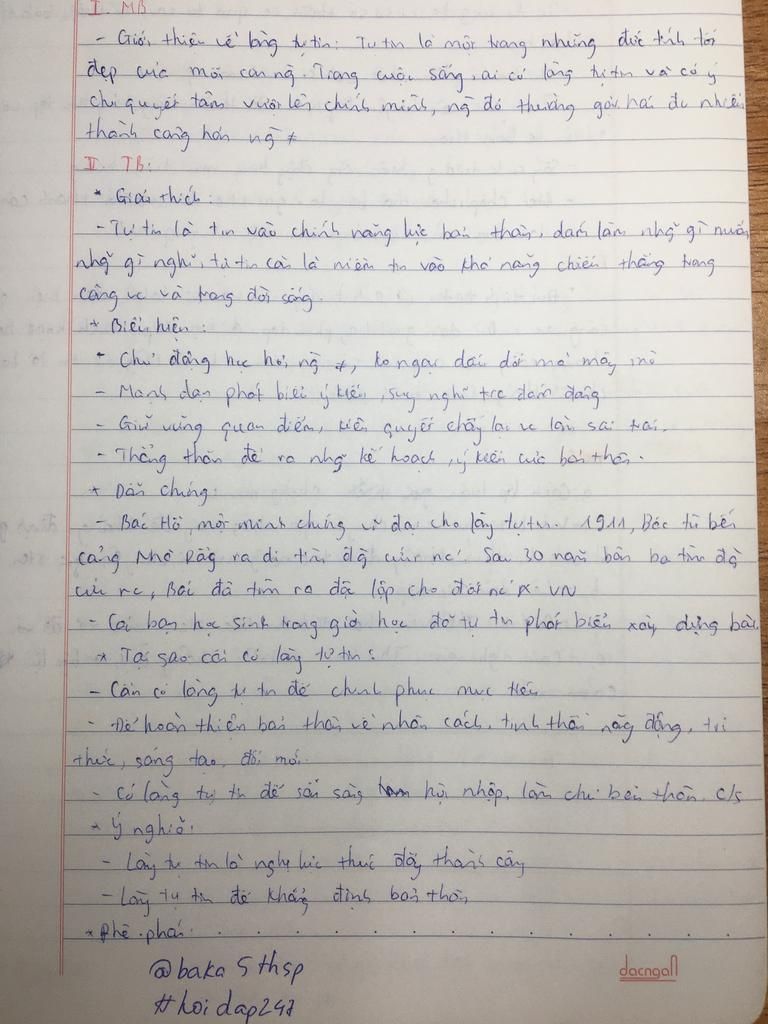 I. MB
- Giới thiệu về lòng tự tin: Tự tin là một trong những đức tính tốt
đẹp của mỗi con ng̃. Trong cuộc sống, ai có lòng tự tin và có ý
chí quyết tâm vượt lên chính mình, ng̃ đó thường gặt hái đc nhiều
thành công hơn ng̃ ≠
II. TB:
* Giải thích:
- Tự tin là tin vào chính năng lực bản thân, dám làm nhg̃ gì muốn,
nhg̃ gì nghĩ, tự tin còn là niềm tin vào khả năng chiến thắng trong
công vc và trong đời sống.
+ Biểu hiện:
- Chủ động học hỏi ng̃ ≠, ko ngại dấn đời mò mẫy
- Mạnh dạn phát biểu ý kiến, suy nghĩ trc đám đông
- Giữ vững quan điểm, kiên quyết chống lại vc làm sai trái.
- Thẳng thắn đề ra nhg̃ kế hoạch, ý kiến của bản thân.
+ Dẫn chứng:
- Bác Hồ, một minh chứng vĩ đại cho lòng tự tin. 1911, Bác từ bến
cảng Nhà Rồng ra đi tìm đg cứu nc. Sau 30 năm bôn ba tìm đg
cứu nc, Bác đã tìm ra độc lập cho đất nc VN
- Các bạn học sinh trong giờ học đã tự tin phát biểu xây dựng bài.
* Tại sao cần có lòng tự tin:
- Cần có lòng tự tin để chinh phục mục tiêu
- Để hoàn thiện bản thân về nhân cách, tinh thần năng động, tri
thức, sáng tạo, đổi mới.
- Có lòng tự tin để sẵn sàng hội nhập, làm chủ bản thân, c/s
+ Ý nghĩa:
- Lòng tự tin là nghị lực thúc đẩy thành công
- Lòng tự tin để khẳng định bản thân
* Phê phán: . . . . . . . . . .
@baka5thsp
#hoidap247
dacngan